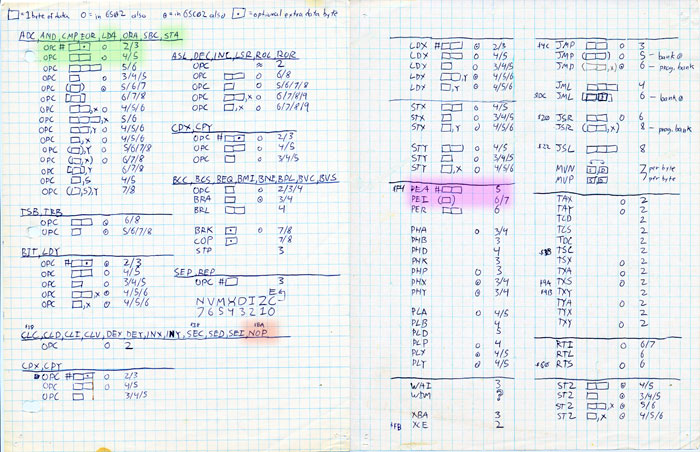 □=1 byte of data o=in 6502 also ⊙=in 65C02 also ⊡=optional extra data byte
ADC, AND, CMP, EOR, LDA, ORA, SBC, STA
OPC # o 2/3
OPC o 4/5
OPC 5/6
OPC o 3/4/5
OPC ( ) ⊙ 5/6/7
OPC [ ] 6/7/8
OPC ,X o 4/5/6
OPC ,X 5/6
OPC ,Y o 4/5/6
OPC ,X o 4/5/6
OPC ( ),Y o 5/6/7/8
OPC ( ,X) o 6/7/8
OPC [ ],Y 6/7/8
OPC ,S 4/5
OPC ( ,S),Y 7/8
TSB, TRB
OPC ⊙ 6/8
OPC ⊙ 5/6/7/8
BIT, LDY
OPC # ⊙ 2/3
OPC o 4/5
OPC o 3/4/5
OPC ,X ⊙ 4/5/6
OPC ,X ⊙ 4/5/6
CLC, CLD, CLI, CLV, DEX, DEY, INX, INY, SEC, SED, SEI, NOP
OPC o 2
CPX, CPY
OPC # o 2/3
OPC o 4/5
OPC 3/4/5
ASL, DEC, INC, LSR, ROL, ROR
OPC 2
OPC o 6/8
OPC o 5/6/7/8
OPC ,X o 6/7/8/9
OPC ,X o 6/7/8/9
CPX, CPY
OPC # o 2/3
OPC o 4/5
OPC o 3/4/5
BCC, BCS, BEQ, BMI, BNE, BPL, BVC, BVS
OPC o 2/3/4
BRA ⊙ 3/4
BRL 4
BRK o 7/8
COP 7/8
STP 3
SEP, REP
OPC # 3
E
NVMXDIZC
76543210
LDX # o 2/3
LDX o 4/5
LDX o 3/4/5
LDX ,Y o 4/5/6
LDX ,Y o 4/5/6
STX o 4/5
STX o 3/4/5
STX ,Y o 4/5
STY o 4/5
STY o 3/4/5
STY ,X o 4/5
PEA # 5
PEI ( ) 6/7
PER 6
PHA o 3/4
PHB 3
PHD 4
PHK 3
PHP o 3
PHX ⊙ 3/4
PHY ⊙ 3/4
PLA o 4/5
PLB 4
PLD 5
PLP o 4
PLX ⊙ 4/5
PLY ⊙ 4/5
WAI 3
WDM
XBA 3
$FB XCE 2
JMP o 3
JMP ( ) o 5 – bank 0
JMP ( ,X) ⊙ 6 – prog. bank
JML 4
JML [ ] 6 – bank 0
$20 JSR o 6
JSR ( ,X) 8 – prog. bank
$22 JSL 8
MVN 7 per byte
MVP 7 per byte
TAX o 2
TAY o 2
TCD 2
TCS 2
TDC 2
TSC 2
TSX o 2
TXA o 2
TXS o 2
TXY 2
TYA o 2
TYX 2
RTI o 6/7
RTL 6
$60 RTS o 6
STZ ⊙ 4/5
STZ ⊙ 3/4/5
STZ ,X ⊙ 5/6
STZ ,X ⊙ 4/5